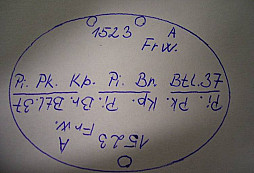 1523 A
Frw.
Pi. Pk. Kp. Pi. Bn. Btl. 37
Pi. Pk. Kp. Pi. Bn. Btl. 37
Frw. A
1523